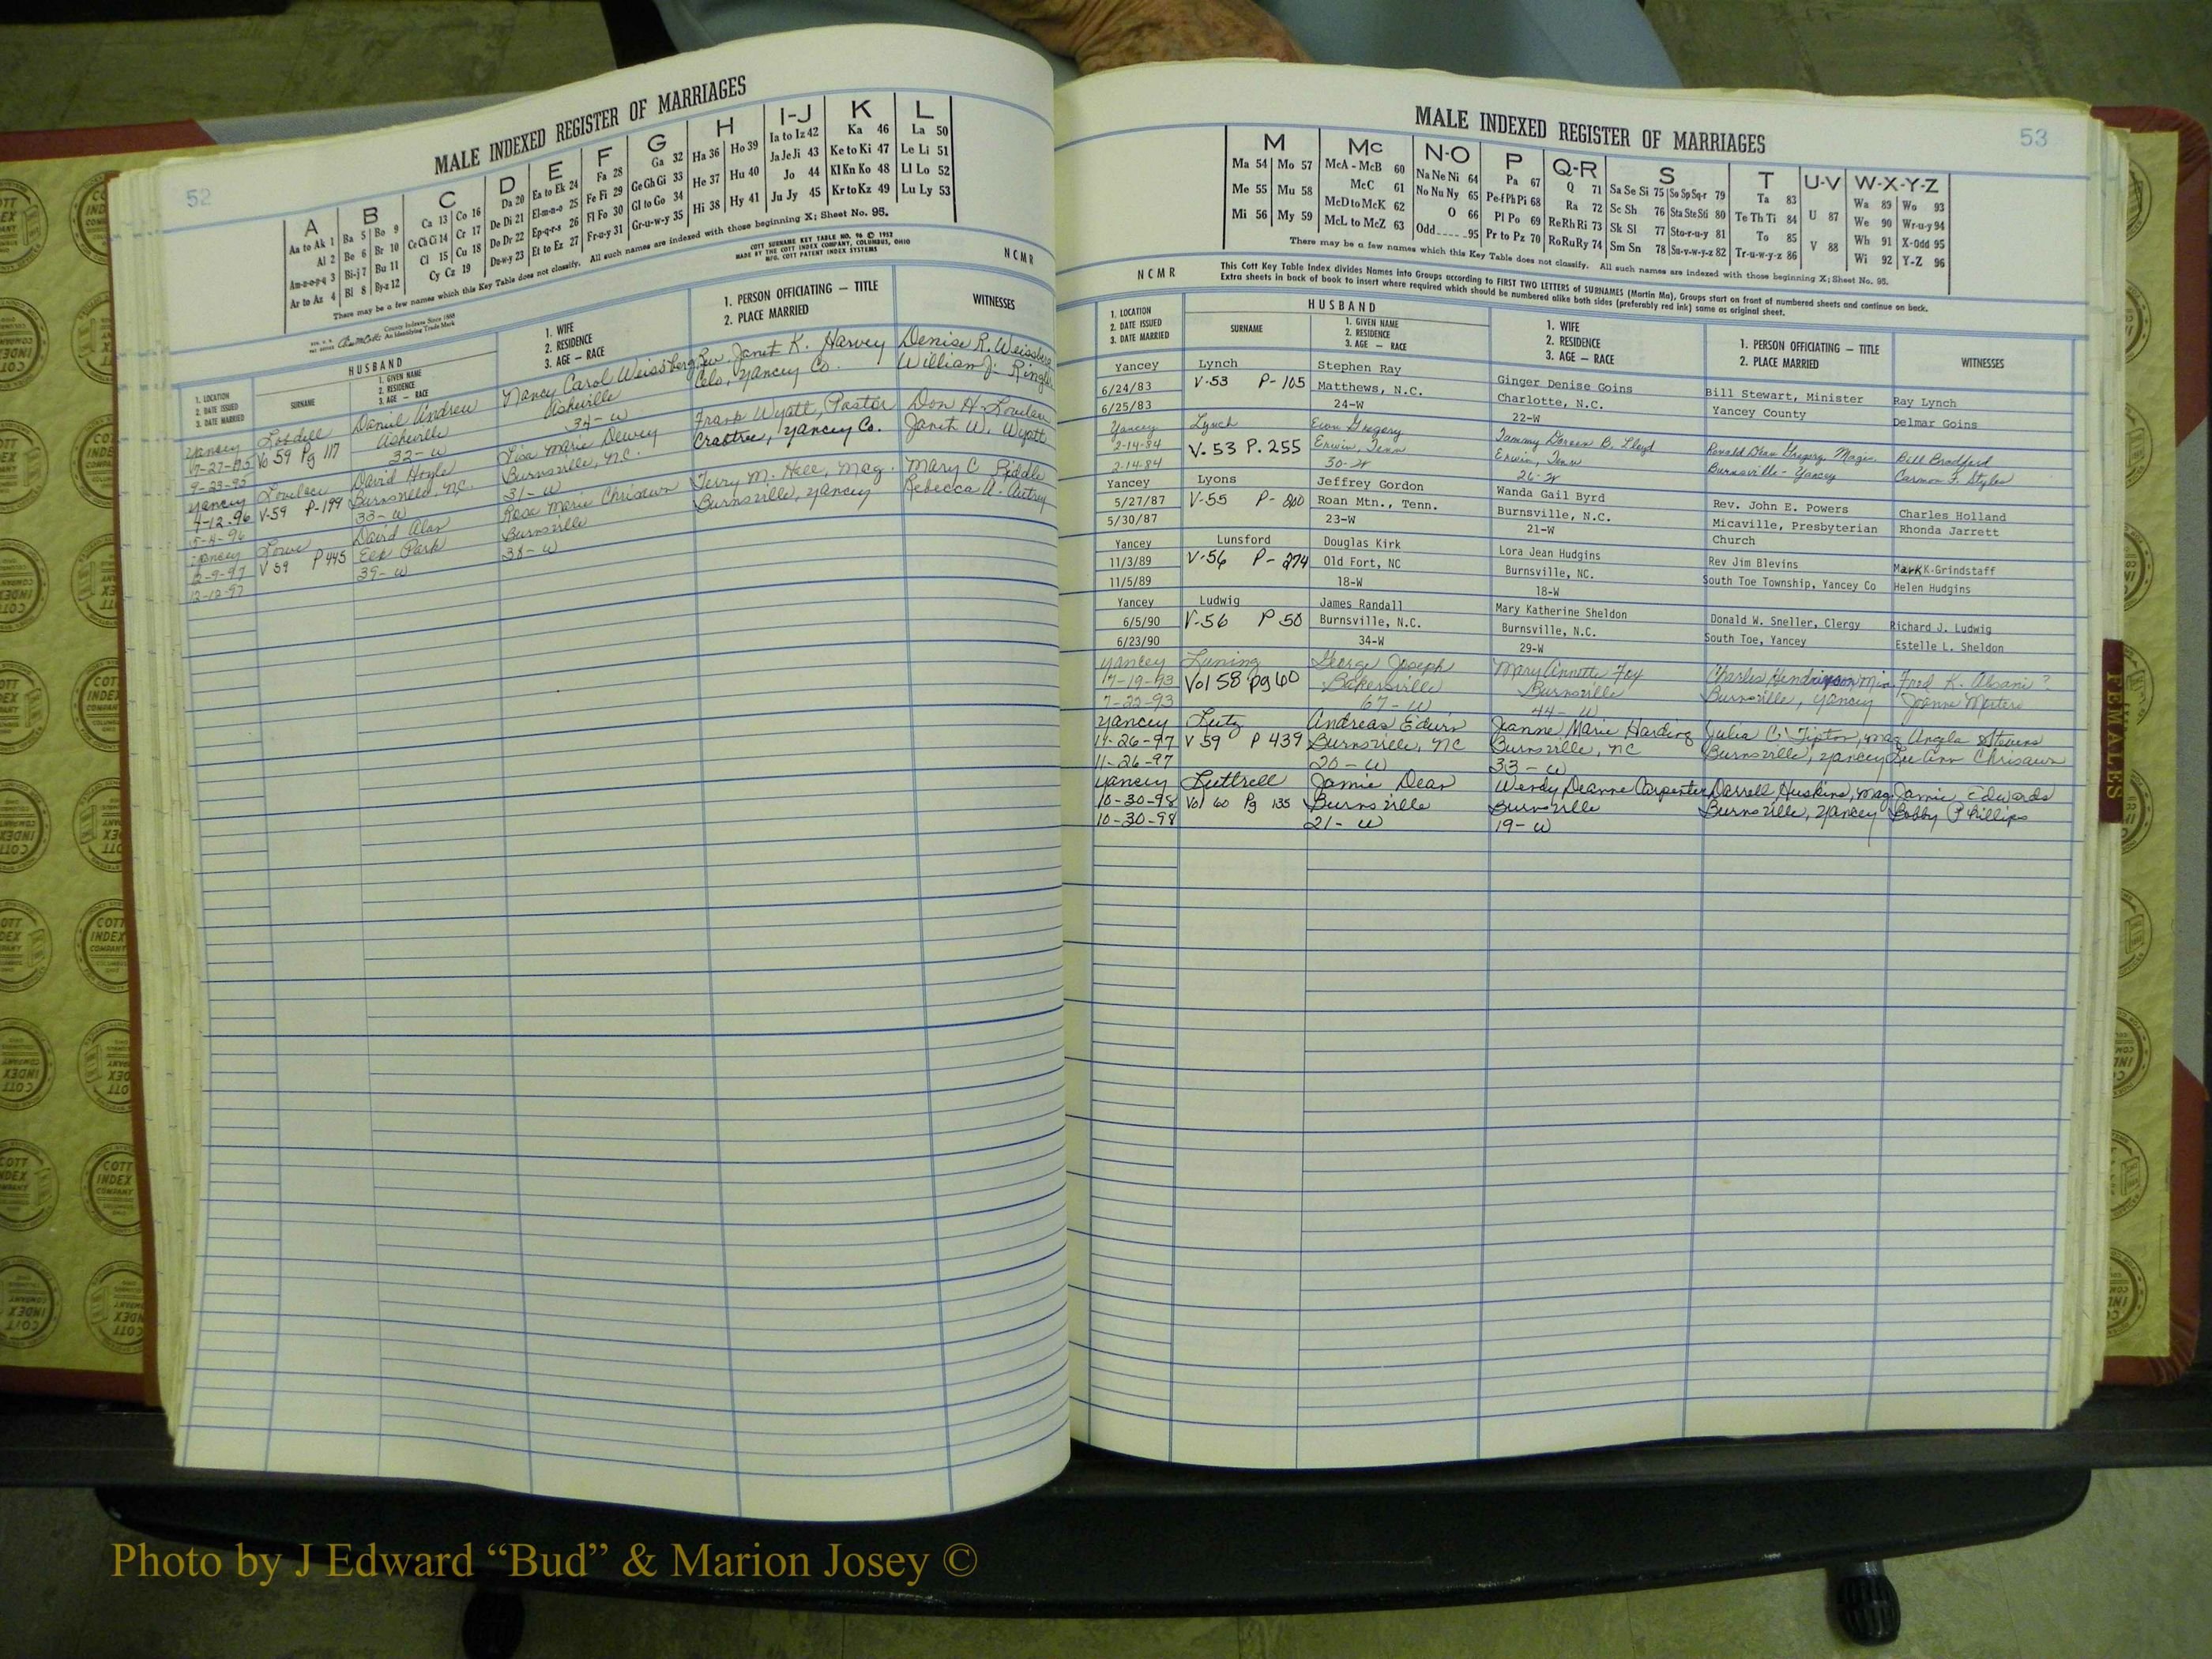 52
MALE INDEXED REGISTER OF MARRIAGES
A B C D E F G H I-J K L
Aa to Ak 1 Ba 5 Bo 9 Ca 13 Co 16 Da 20 Ea to Ek 24 Fa 28 Ga 32 Ha 36 Ho 39 Ia to Iz 42 Ka 46 La 50
Al 2 Be 6 Br 10 Ce Ch Ci 14 Cr 17 De Di 21 El-m-n-o 25 Fe Fi 29 Ge Gh Gi 33 He 37 Hu 40 Ja Je Ji 43 Ke to Ki 47 Le Li 51
Am-n-o-p-q 3 Bi-j 7 Bu 11 Cl 15 Cu 18 Do Dr 22 Ep-q-r-s 26 Fl Fo 30 Gl to Go 34 Hi 38 Hy 41 Jo 44 Kl Kn Ko 48 Ll Lo 52
Ar to Az 4 Bl 8 By-z 12 Cy Cz 19 Du-w-y 23 Et to Ez 27 Fr-u-y 31 Gr-u-w-y 35 Ju Jy 45 Kr to Kz 49 Lu Ly 53
There may be a few names which this Key Table does not classify. All such names are indexed with those beginning X; Sheet No. 95.
COTT SURNAME KEY TABLE NO. 96 © 1952
MADE BY THE COTT INDEX COMPANY, COLUMBUS, OHIO
MFG. COTT PATENT INDEX SYSTEMS
N C M R
County Indexes Since 1888
An Identifying Trade Mark
1. LOCATION
2. DATE ISSUED
3. DATE MARRIED
HUSBAND
SURNAME
1. GIVEN NAME
2. RESIDENCE
3. AGE — RACE
1. WIFE
2. RESIDENCE
3. AGE — RACE
1. PERSON OFFICIATING — TITLE
2. PLACE MARRIED
WITNESSES
Yancey Lobdell Daniel Andrew Nancy Carol Weissberg Rev. Janet K. Harvey Denise R. Weissberg
Vo 59 Pg 117 Asheville Asheville Celo, Yancey Co. William J.
9-23-95 32-W 34-W
Yancey Lovelace David Hoyle Lisa Marie Dewey Frank Wyatt, Pastor Don H. Lovelace
4-12-96 V-59 P-199 Burnsville, NC. Burnsville, N.C. Crabtree, Yancey Co. Janet W. Wyatt
5-4-96 33-W 31-W
Yancey Lowe David Alan Rose Marie Chrisawn Terry M. Hall, Mag. Mary C Riddle
12-9-97 V 59 P 445 Elk Park Burnsville Burnsville, Yancey Rebecca A. Autrey
12-12-97 39-W 38-W
53
MALE INDEXED REGISTER OF MARRIAGES
M Mc N-O P Q-R S T U-V W-X-Y-Z
Ma 54 Mo 57 McA - McB 60 Na Ne Ni 64 Pa 67 Q 71 Sa Se Si 75 So Sp Sq-r 79 Ta 83 U 87 Wa 89 Wo 93
Me 55 Mu 58 McC 61 No Nu Ny 65 Pe-f Ph Pi 68 Ra 72 Sc Sh 76 Sta Ste Sti 80 Te Th Ti 84 V 88 We 90 Wr-u-y 94
Mi 56 My 59 McD to McK 62 O 66 Pl Po 69 Re Rh Ri 73 Sk Sl 77 Sto-r-u-y 81 To 85 Wh 91 X-Odd 95
McL to McZ 63 Odd 95 Pr to Pz 70 Ro Ru Ry 74 Sm Sn 78 Su-v-w-y-z 82 Tr-u-w-y-z 86 Wi 92 Y-Z 96
There may be a few names which this Key Table does not classify. All such names are indexed with those beginning X; Sheet No. 95.
N C M R
This Cott Key Table Index divides Names into Groups according to FIRST TWO LETTERS of SURNAMES (Martin Ma), Groups start on front of numbered sheets and continue on back.
Extra sheets in back of book to insert where required which should be numbered alike both sides (preferably red ink) same as original sheet.
1. LOCATION
2. DATE ISSUED
3. DATE MARRIED
HUSBAND
SURNAME
1. GIVEN NAME
2. RESIDENCE
3. AGE — RACE
1. WIFE
2. RESIDENCE
3. AGE — RACE
1. PERSON OFFICIATING — TITLE
2. PLACE MARRIED
WITNESSES
Yancey Lynch Stephen Ray Ginger Denise Goins Bill Stewart, Minister Ray Lynch
6/24/83 V-53 P-105 Matthews, N.C. Charlotte, N.C. Yancey County Delmar Goins
6/25/83 24-W 22-W
Yancey Lynch Evan Gregory Tammy Doreen B. Lloyd Ronald Dean Gregory Magis. Bill Bradford
2-14-84 V-53 P.255 Erwin, Tenn Erwin, Tenn Burnsville - Yancey Carmon F. Styles
2-14-84 30-W 26-W
Yancey Lyons Jeffrey Gordon Wanda Gail Byrd Rev. John E. Powers Charles Holland
5/27/87 V-55 P- Roan Mtn., Tenn. Burnsville, N.C. Micaville, Presbyterian Rhonda Jarrett
5/30/87 23-W 21-W Church
Yancey Lunsford Douglas Kirk Lora Jean Hudgins Rev Jim Blevins Mark K. Grindstaff
11/3/89 V-56 P-274 Old Fort, NC Burnsville, NC. South Toe Township, Yancey Co Helen Hudgins
11/5/89 18-W 18-W
Yancey Ludwig James Randall Mary Katherine Sheldon Donald W. Sneller, Clergy Richard J. Ludwig
6/5/90 V-56 P 50 Burnsville, N.C. Burnsville, N.C. South Toe, Yancey Estelle L. Sheldon
6/23/90 34-W 29-W
Yancey Luning George Joseph Mary Annette Fox Charles Hendrickson Min Fred K. Alsani?
7-19-93 Vol 58 pg 60 Bakersville Burnsville Burnsville, Yancey Joanne
7-22-93 67-W 44-W
Yancey Lutz Andreas Edwin Jeanne Marie Harding Julia C. Tipton, Mag Angela Stevens
11-26-97 V 59 P 439 Burnsville, NC Burnsville, NC Burnsville, Yancey Lee Ann Chrisawn
11-26-97 20-W 33-W
Yancey Luttrell Jamie Dean Wendy Deanne Carpenter Darrell Huskins, Mag. Jamie Edwards
10-30-98 Vol 60 Pg 135 Burnsville Burnsville Burnsville, Yancey Bobby Phillips
10-30-98 21-W 19-W
FEMALES
COTT INDEX COMPANY
Photo by J Edward “Bud” & Marion Josey ©